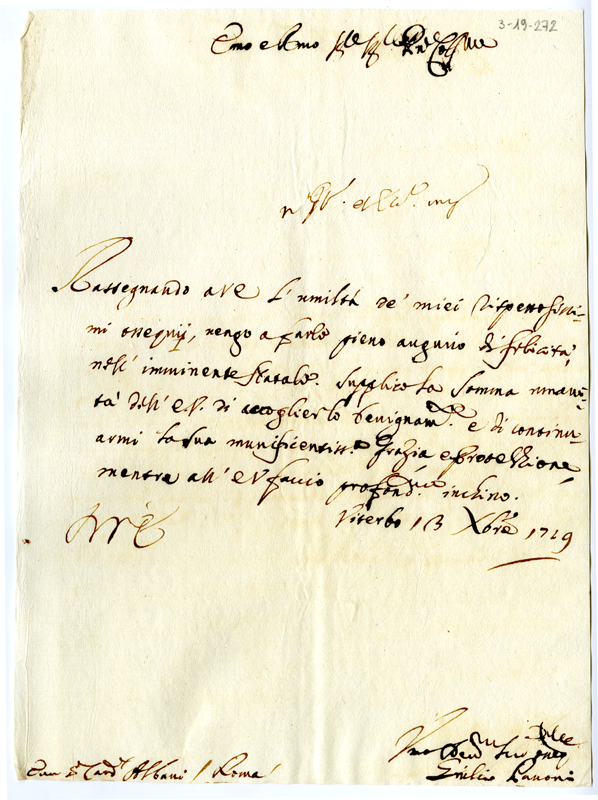 3-19-272
Emo e Rmo
Rassegnando a VE l'umiltà de' miei rispettosissi-
mi ossequij, vengo a farle pieno augurio di felicità
nell' imminente Natale. Supplico la somma umani-
tà dell' E.V. di accoglierlo benignam.te e di continu-
armi la sua munificentiss.a Grazia e Protezzione,
mentre all' E V faccio profond.mo inchino.
Viterbo 13 Xbre 1719
Card. Albani / Roma
Giulio